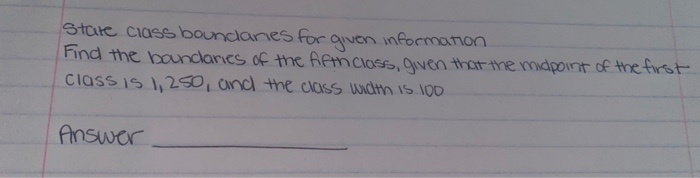 State class boundaries for given information
Find the boundaries of the fifth class, given that the midpoint of the first
class is 1,250, and the class width is 100
Answer